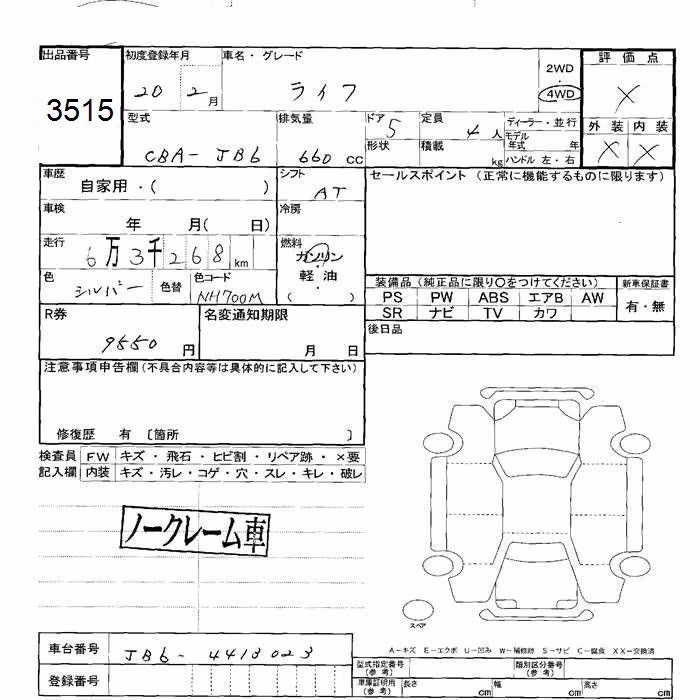 出品番号 初度登録年月 車名・グレード 評価点
3515 20 2月 ライフ 2WD 4WD X
型式 排気量 ドア 5 定員 4人 ディーラー・並行 外装 内装
CBA-JB6 660 CC 形状 積載 kg モデル年式 年 ハンドル 左・右 X X
車歴 シフト セールスポイント (正常に機能するものに限ります)
自家用・( ) AT
車検 冷房
年 月( 日)
走行 燃料
6万3千268km ガソリン
色 シルバー 色替 色コード NH700M 軽油
・
( )
装備品 (純正品に限り〇をつけてください) 新車保証書
PS PW ABS エアB AW 有・無
SR ナビ TV カワ
R券 名変通知期限 後日品
9550 円 月 日
注意事項申告欄 (不具合内容等は具体的に記入して下さい)
修復歴 有 〔箇所 〕
検査員 FW キズ・飛石・ヒビ割・リペア跡・×要
記入欄 内装 キズ・汚レ・コゲ・穴・スレ・キレ・破レ
ノークレーム車
スペア
A-キズ E-エクボ U-凹み W-補修跡 S-サビ C-腐食 XX-交換済
車台番号 JB6-4413023 型式指定番号 (参考) 類別区分番号 (参考)
登録番号 車庫証明用 (参考) 長さ cm 幅 cm 高さ cm